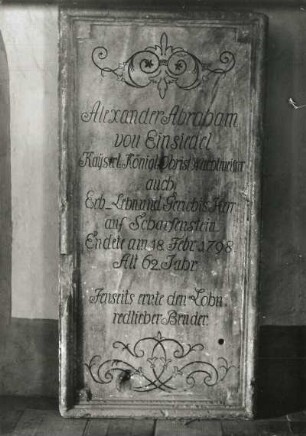 Alexander Abraham
von Einsiedel
Kaÿserl. Königl. Obrist
auch
Erb- Lehn und Gerichts Herr
auf Scharfenstein.
Endete am 18. Febr. 1798.
Alt 62 Jahr
Jenseits ernte den Lohn
redlicher Bruder.